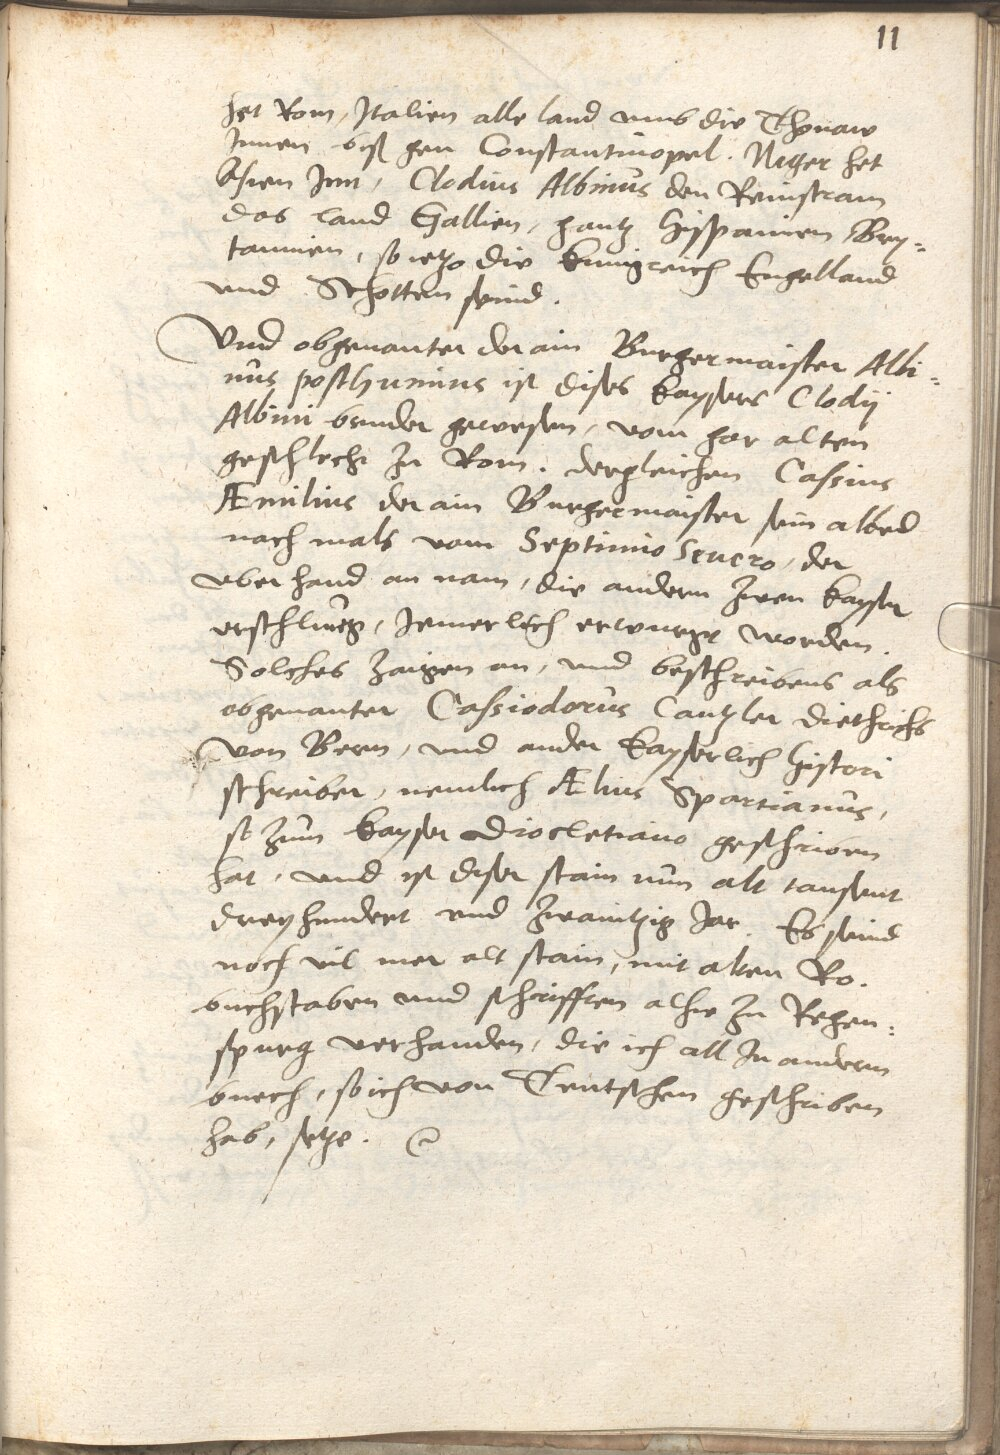 11
het Rom, Italien alle land umb die Thonaw
Innen biß gen Constantinopel. Niger het
Asien Inn, Clodius Albinus den Reinstram
das land Gallien, gantz Hispanien Bry=
tannien, so ietzo die kunigreich Engelland
und Schotten seind.
Und obgenanter der ain Burgermaister Albi=
nus posthumius ist dises kaysers Clodij
Albini bruder gewesen, vom gar alten
geschlecht zu Rom. dergleichen Cassius
Æmilius der ain Burgermaister sein albed
nachmals vom Septimio Seuero, der
uberhand an nam, die andern zwen kayser
erschlueg, Jemerlich erwurgt worden.
Solches zaigen an, und beschreibens als
obgenanter Cassiodorus Cantzler Diethrichs
von Bern, und ander kayserlich histori
schreiber, nemlich Ælius Spartianus,
so zum kayser Diocletiano geschriben
hat, und ist diser stain nun alt tausent
dreyhundert und zwaintzig Jar. Es seind
noch vil mer alt stain, mit alten Ro.
buchstaben und schrifften alhie zu Regen=
spurg verhanden, die ich all In anderm
buech, so ich von Teutschen geschriben
hab, setze.